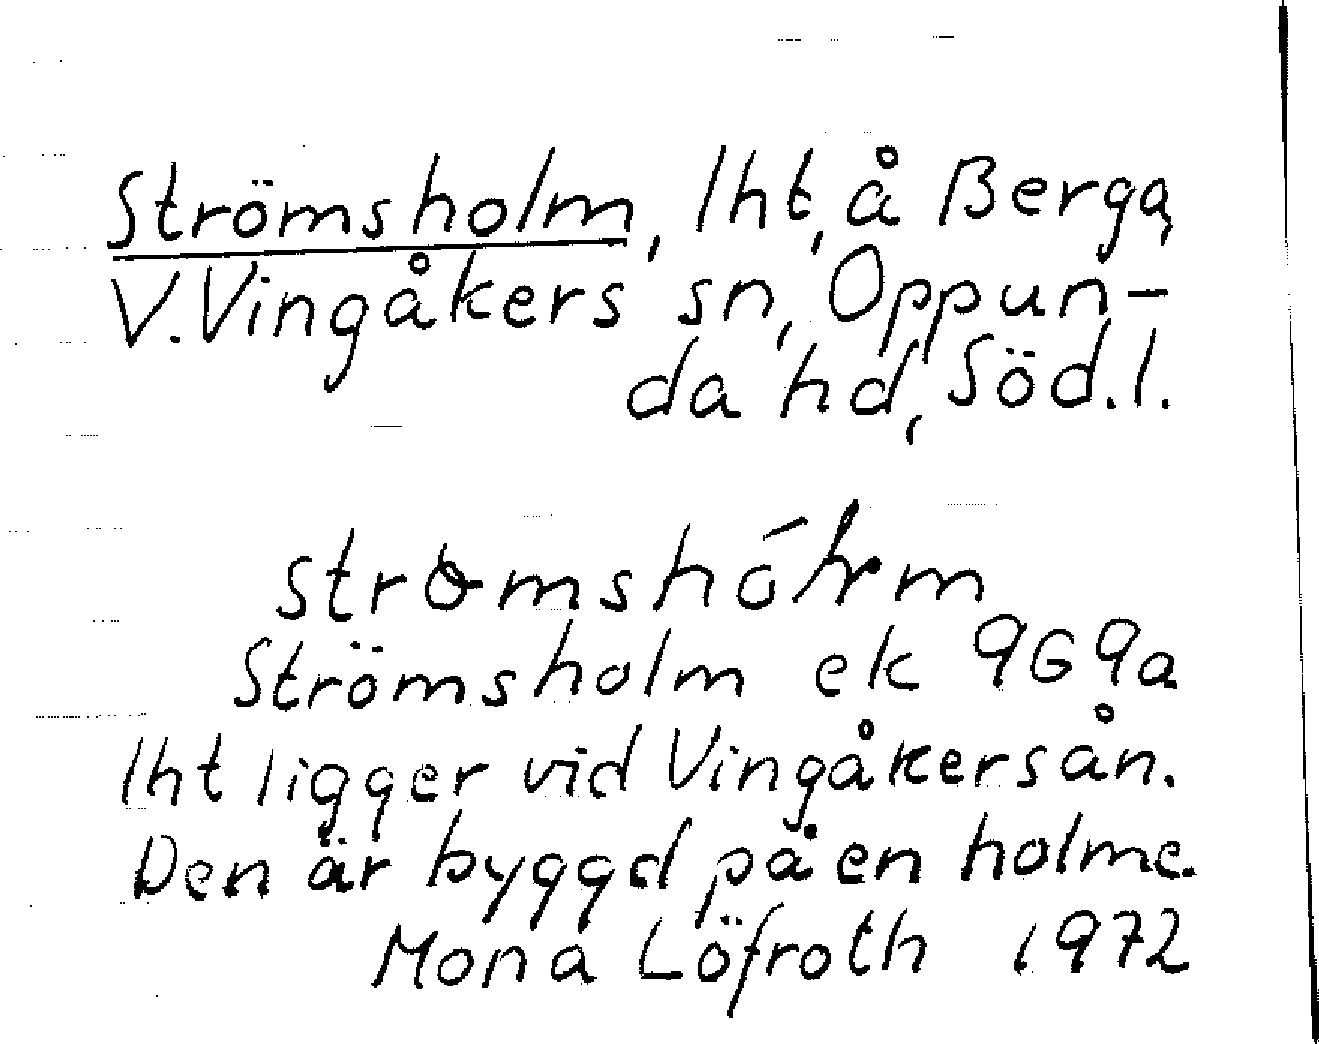 Strömsholm, lht, å Berga,
V. Vingåkers sn, Oppun-
da hd, Söd.l.
Strömsholm ek 9G9a
lht ligger vid Vingåkersån.
Den är byggd på en holme.
Mona Löfroth 1972